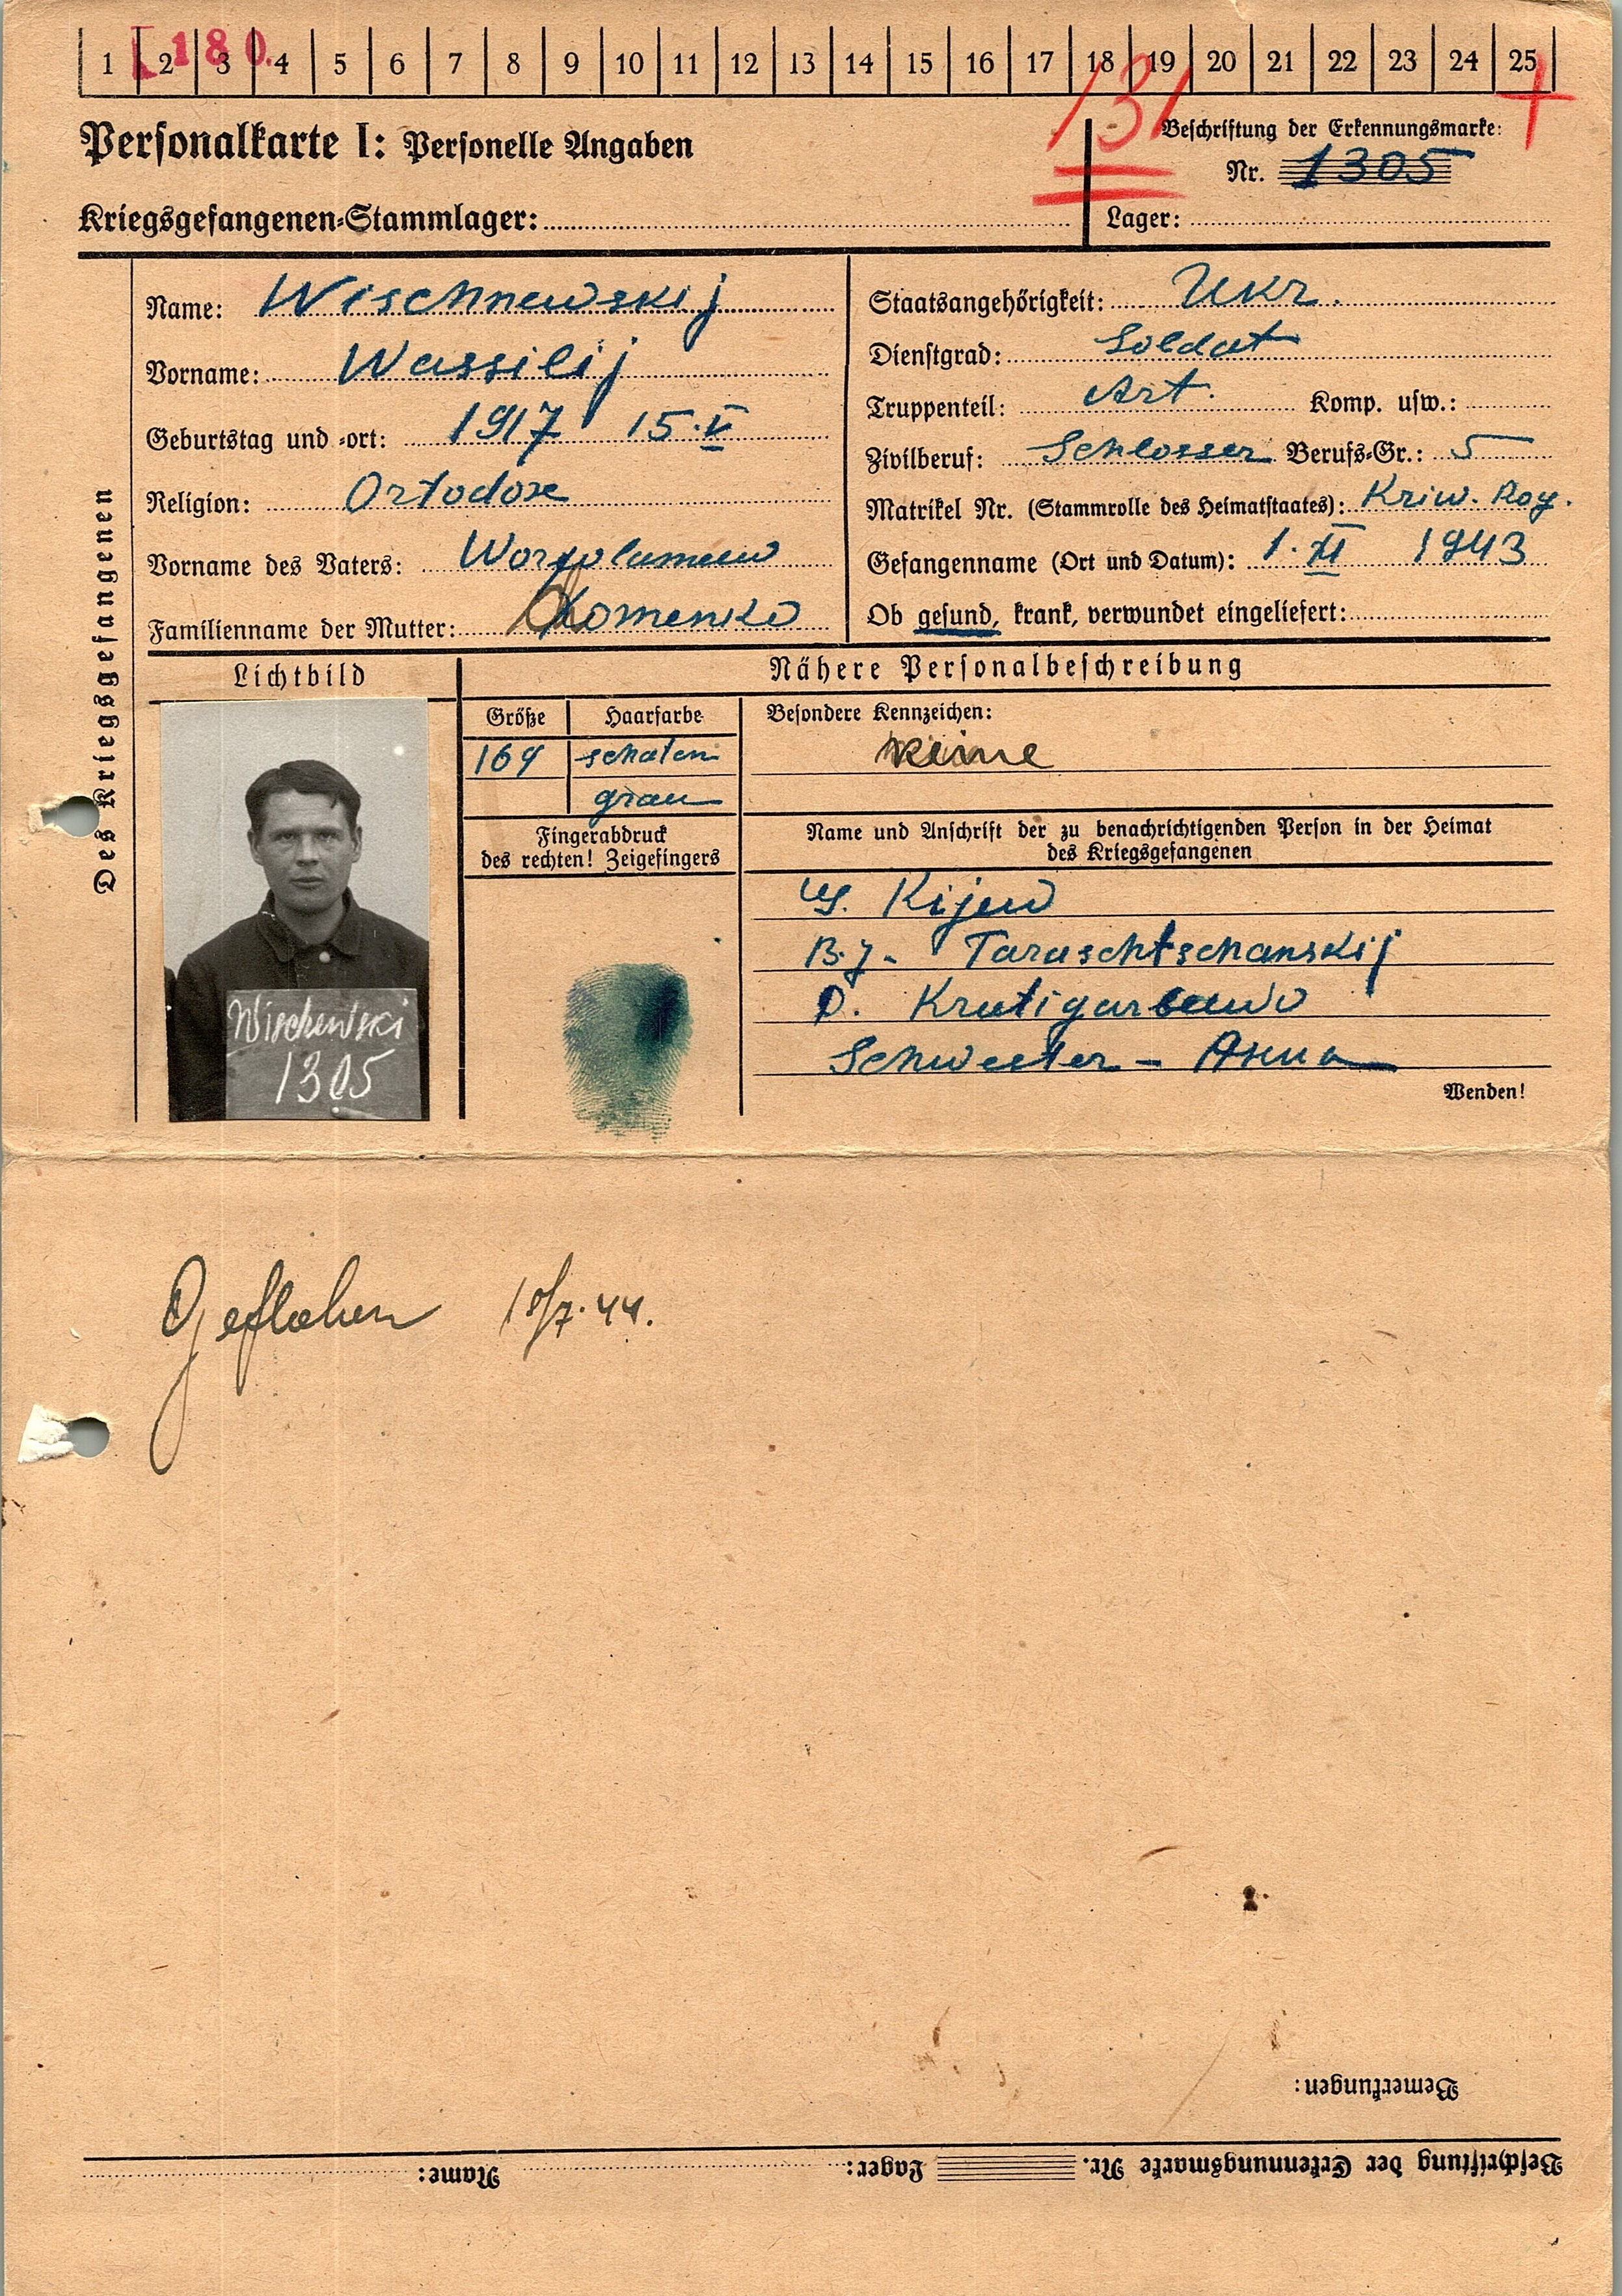 1 2 3 4 5 6 7 8 9 10 11 12 13 14 15 16 17 18 19 20 21 22 23 24 25
180.
131
Personalkarte I: Personelle Angaben
Beschriftung der Erkennungsmarke:
Nr. 1305
Kriegsgefangenen-Stammlager:
Lager:
Des Kriegsgefangenen
Name: Wischnewskij
Vorname: Wassilij
Geburtstag und -ort: 1917 15.V
Religion: Ortodox
Vorname des Vaters:
Familienname der Mutter:
Staatsangehörigkeit: Ukr.
Dienstgrad: Soldat
Truppenteil: Art. Komp. usw.:
Zivilberuf: Schlosser Berufs-Gr.: 5
Matrikel Nr. (Stammrolle des Heimatstaates): Kriw. Rog.
Gefangenname (Ort und Datum): 1. XI 1943
Ob gesund, krank, verwundet eingeliefert:
Lichtbild
Nähere Personalbeschreibung
Größe Haarfarbe
169 schaten
grau
Fingerabdruck
des rechten! Zeigefingers
Besondere Kennzeichen:
keine
Name und Anschrift der zu benachrichtigenden Person in der Heimat
des Kriegsgefangenen
Kijew
Taraschtschanskij
Schwester - Anna
Wenden!
Wischewski
1305
Geflohen 18/7.44.
Bemerkungen:
Beschriftung der Erkennungsmarke Nr. Lager: Name: